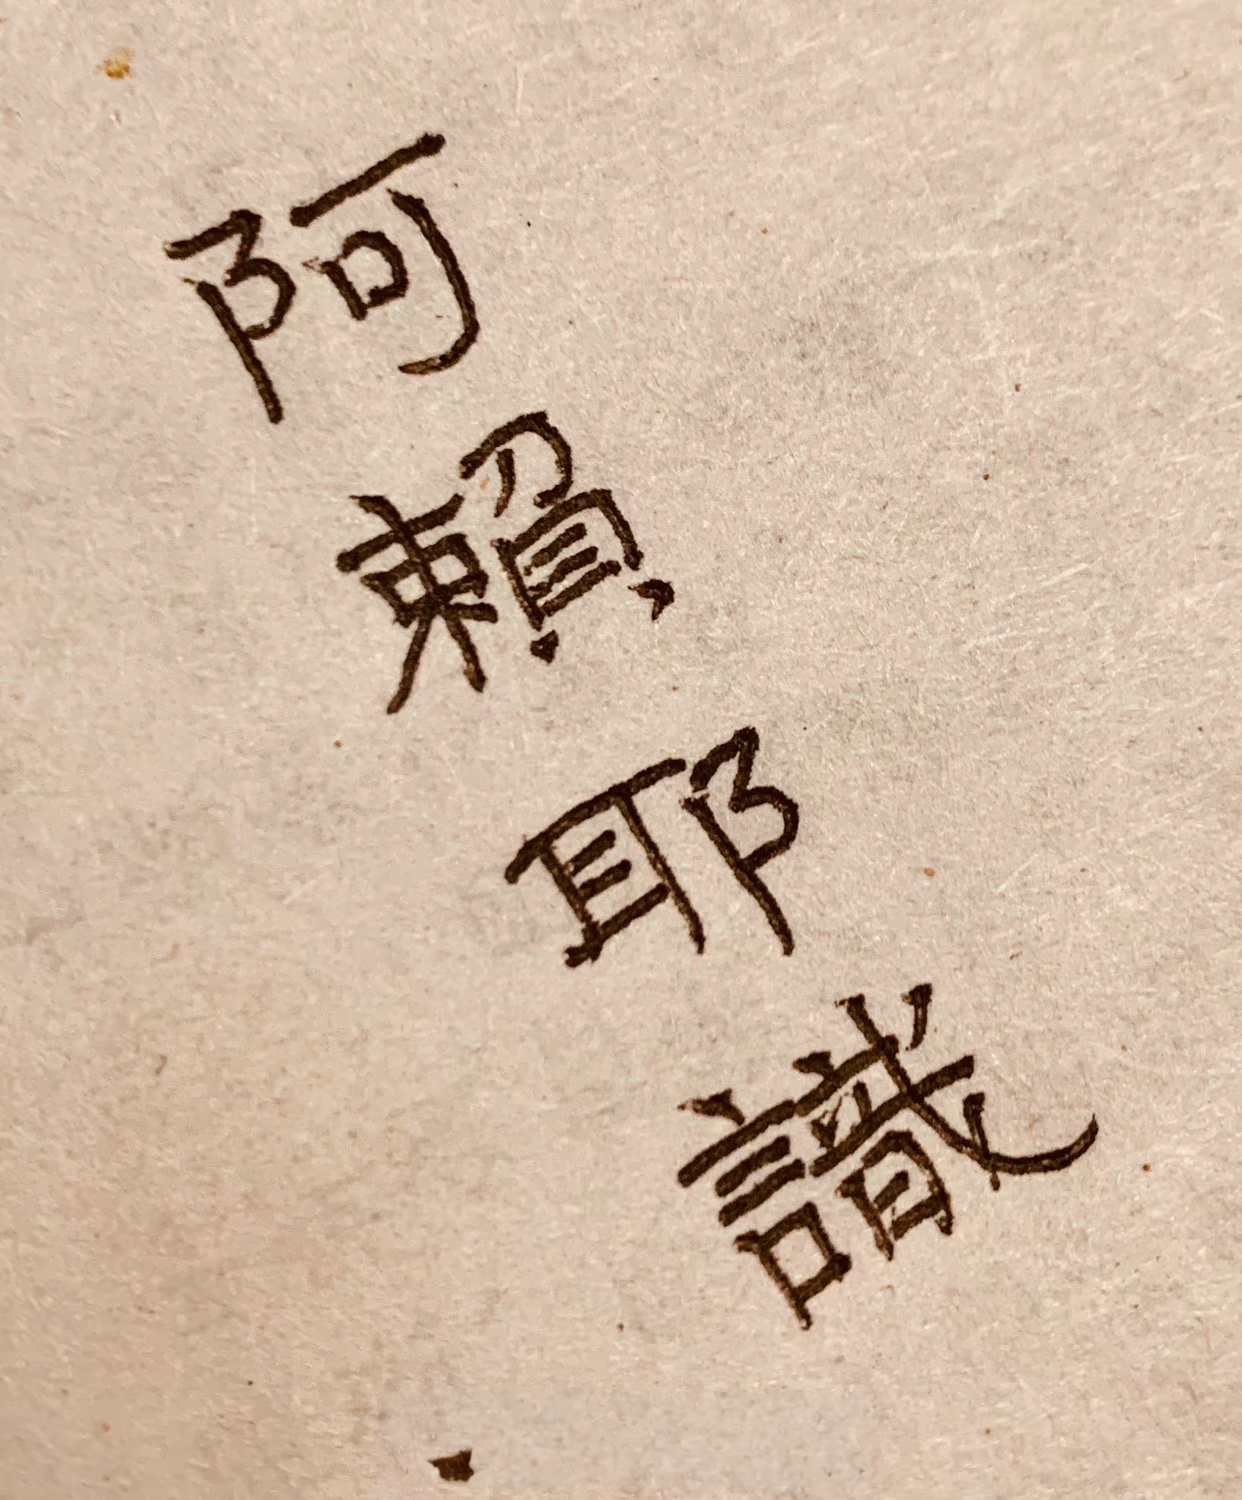 阿賴耶識